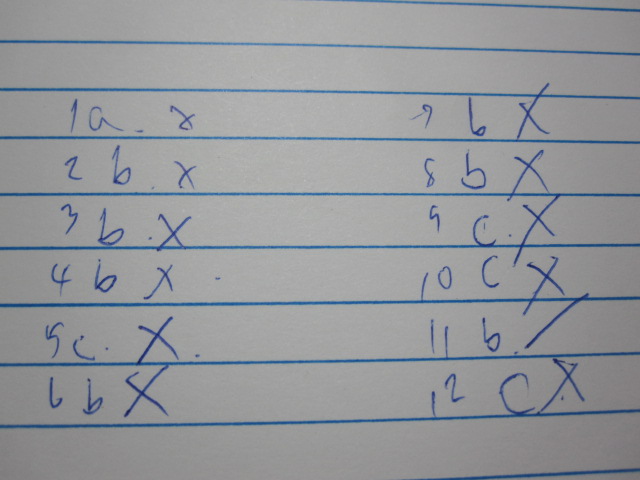 1 a. x
2 b. x
3 b. X
4 b X.
5 c. X.
6 b X
7 b X
8 b X
9 c. X
10 C X
11 b. /
12 C. X